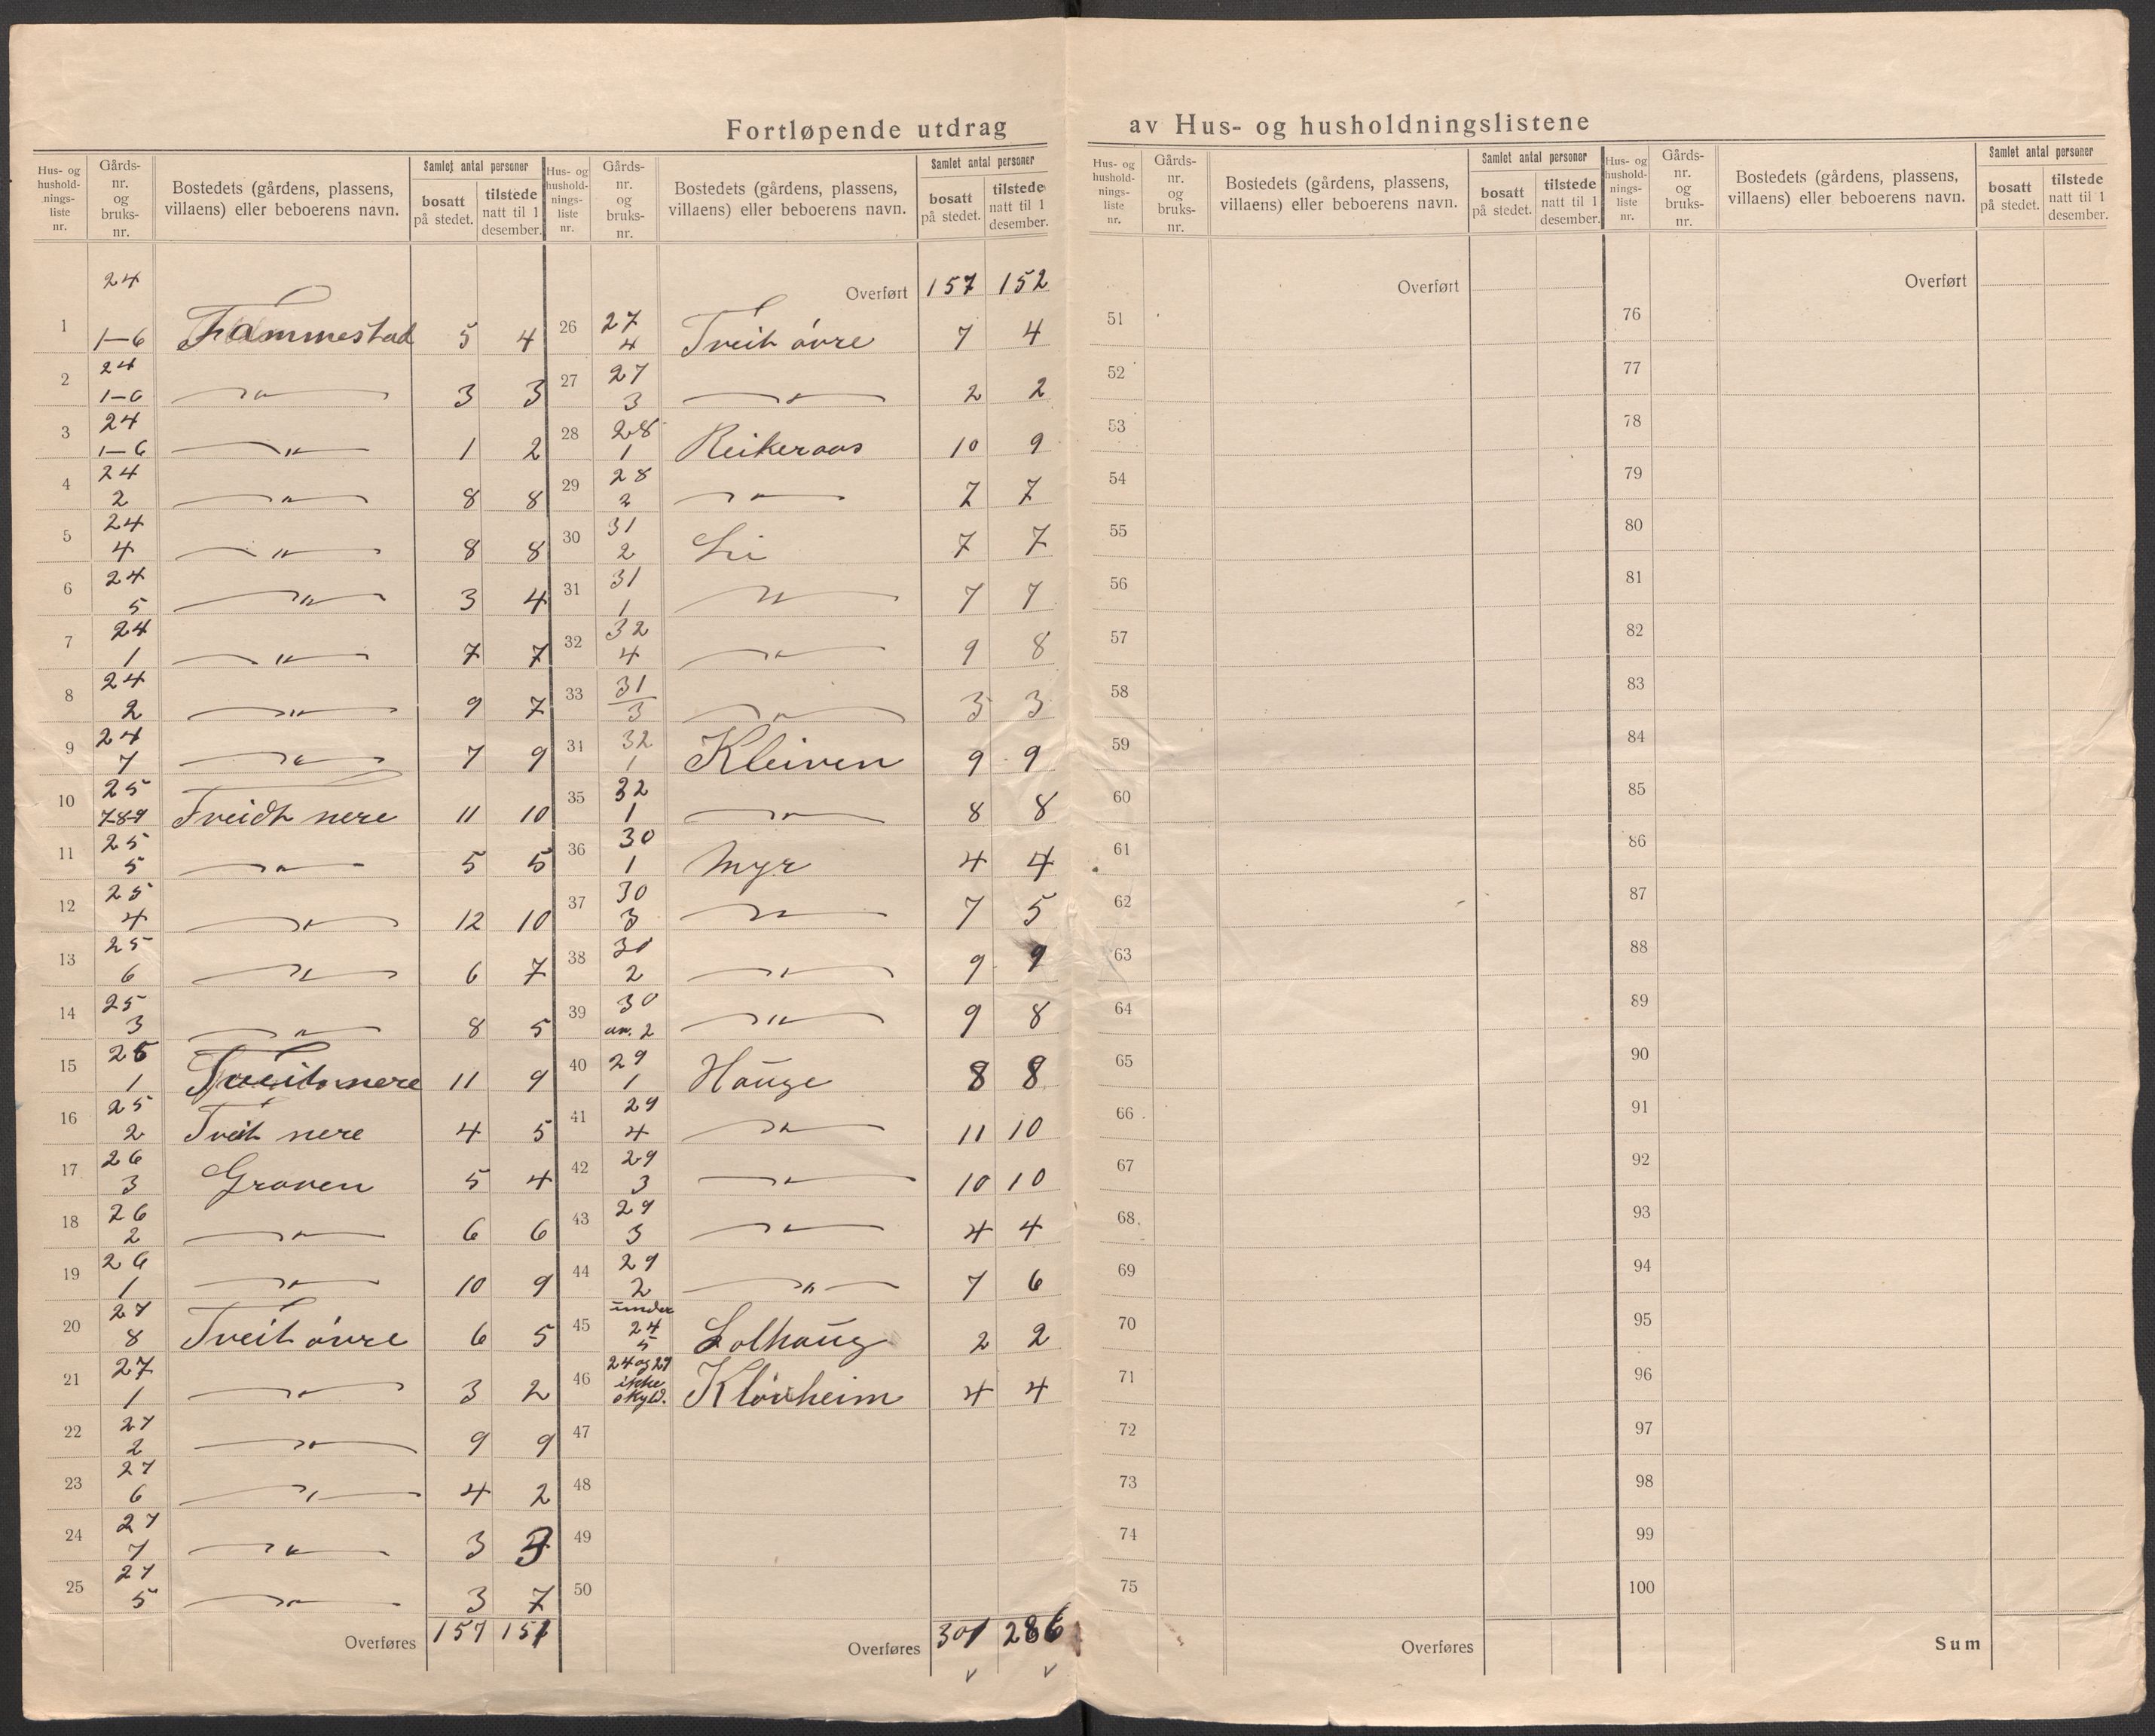 Fortløpende utdrag av Hus- og husholdningslistene
Hus- og hushold- nings- liste nr. | Gårds- nr. og bruks- nr. | Bostedets (gårdens, plassens, villaens) eller beboerens navn. | Samlet antal personer | bosatt på stedet. | tilstede natt til 1 desember.
Hus- og hushold- nings- liste nr. | Gårds- nr. og bruks- nr. | Bostedets (gårdens, plassens, villaens) eller beboerens navn. | Samlet antal personer | bosatt på stedet. | tilstede natt til 1 desember.
1 | 24 1-6 | Fammestad | 5 | 4
2 | 24 1-6 | —"— | 3 | 3
3 | 24 1-6 | —"— | 1 | 2
4 | 24 2 | —"— | 8 | 8
5 | 24 4 | —"— | 8 | 8
6 | 24 5 | —"— | 3 | 4
7 | 24 1 | —"— | 7 | 7
8 | 24 2 | —"— | 9 | 7
9 | 24 7 | —"— | 7 | 9
10 | 25 7-8-9 | Tveidt nere | 11 | 10
11 | 25 5 | —"— | 5 | 5
12 | 25 4 | —"— | 12 | 10
13 | 25 6 | —"— | 6 | 7
14 | 25 3 | —"— | 8 | 5
15 | 25 1 | Tveit nere | 11 | 9
16 | 25 2 | Tveit nere | 4 | 5
17 | 26 3 | Graven | 5 | 4
18 | 26 2 | —"— | 6 | 6
19 | 26 1 | —"— | 10 | 9
20 | 27 8 | Tveit øvre | 6 | 5
21 | 27 1 | —"— | 3 | 2
22 | 27 2 | —"— | 9 | 9
23 | 27 6 | —"— | 4 | 2
24 | 27 7 | —"— | 3 | 3
25 | 27 5 | —"— | 3 | 7
Overføres | 157 | 151
Overført | 157 | 152
26 | 27 4 | Tveit øvre | 7 | 4
27 | 27 3 | —"— | 2 | 2
28 | 28 1 | Reikeraas | 10 | 9
29 | 28 2 | —"— | 7 | 7
30 | 31 2 | Li | 7 | 7
31 | 31 1 | —"— | 7 | 7
32 | 32 4 | —"— | 9 | 8
33 | 31 3 | —"— | 3 | 3
34 | 32 1 | Kleiven | 9 | 9
35 | 32 1 | —"— | 8 | 8
36 | 30 1 | Myr | 4 | 4
37 | 30 3 | —"— | 7 | 5
38 | 30 2 | —"— | 9 | 9
39 | 30 un. 2 | —"— | 9 | 8
40 | 29 1 | Hauge | 8 | 8
41 | 29 4 | —"— | 11 | 10
42 | 29 3 | —"— | 10 | 10
43 | 29 3 | —"— | 4 | 4
44 | 29 2 | —"— | 7 | 6
45 | under 24 5 | Solhaug | 2 | 2
46 | 24 og 29 ikke skyld. | Kløvheim | 4 | 4
47
48
49
50
Overføres | 301 | 286
Hus- og hushold- nings- liste nr. | Gårds- nr. og bruks- nr. | Bostedets (gårdens, plassens, villaens) eller beboerens navn. | Samlet antal personer | bosatt på stedet. | tilstede natt til 1 desember.
Overført
51
52
53
54
55
56
57
58
59
60
61
62
63
64
65
66
67
68
69
70
71
72
73
74
75
Overføres
Hus- og hushold- nings- liste nr. | Gårds- nr. og bruks- nr. | Bostedets (gårdens, plassens, villaens) eller beboerens navn. | Samlet antal personer | bosatt på stedet. | tilstede natt til 1 desember.
Overført
76
77
78
79
80
81
82
83
84
85
86
87
88
89
90
91
92
93
94
95
96
97
98
99
100
Sum